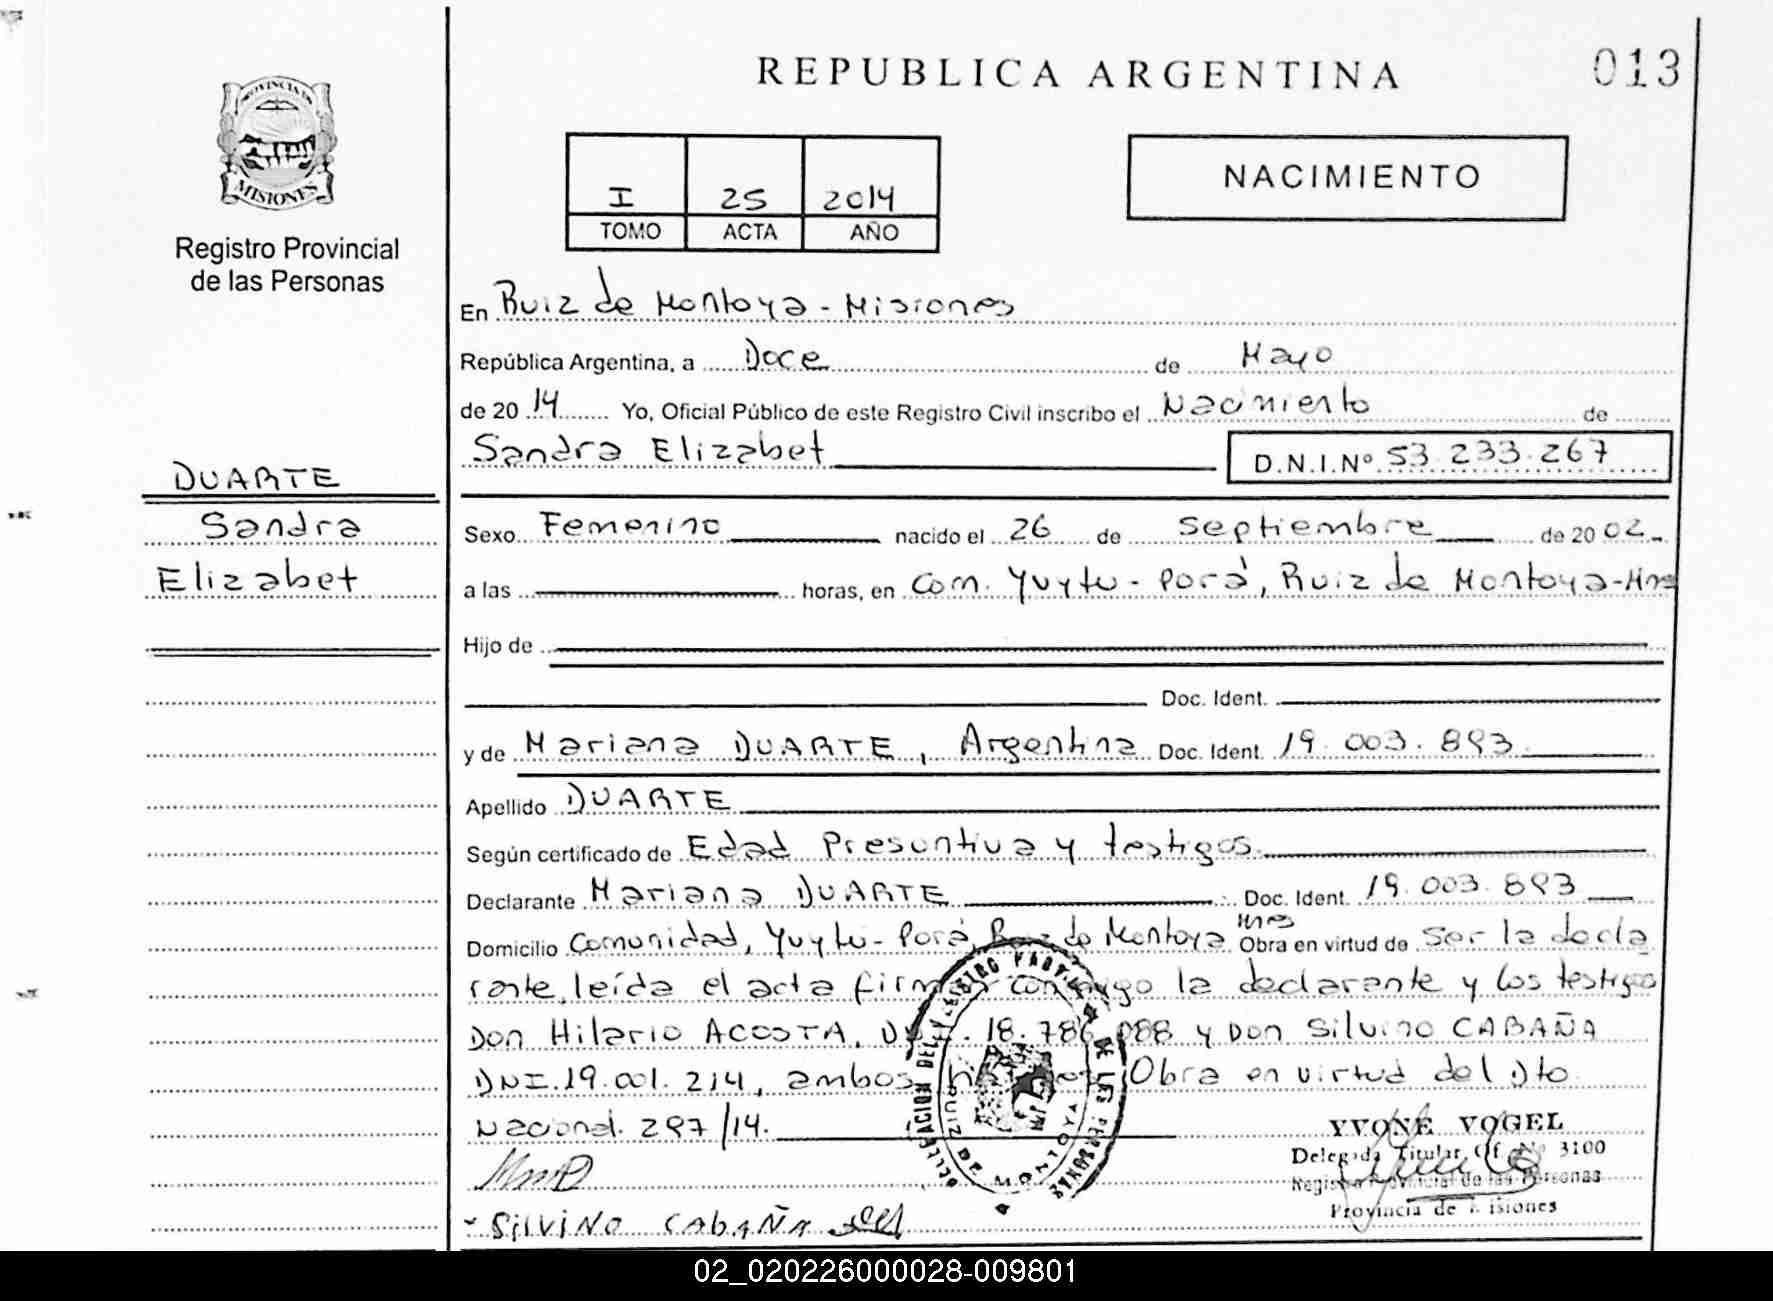 REPUBLICA ARGENTINA
013
PROVINCIA DE
MISIONES
Registro Provincial
de las Personas
I 25 2014
TOMO ACTA AÑO
NACIMIENTO
En Ruiz de Montoya - Misiones
República Argentina, a Doce de Mayo
de 20 14 Yo, Oficial Público de este Registro Civil inscribo el Nacimiento de
Sandra Elizabet D.N.I.Nº 53.233.267
DUARTE
Sandra
Elizabet
Sexo Femenino nacido el 26 de Septiembre de 20 02
a las horas, en Com. Yvytu - Porá, Ruiz de Montoya - Mnes
Hijo de
Doc. Ident.
y de Mariana DUARTE, Argentina Doc. Ident. 19.003.893
Apellido DUARTE
Según certificado de Edad Presuntiva y testigos.
Declarante Mariana DUARTE Doc. Ident. 19.003.893
Domicilio Comunidad, Yvytu - Porá, Ruiz de Montoya Mnes Obra en virtud de Ser la decla
rante, leída el acta firman conmigo la declarante y los testigos
Don Hilario ACOSTA, DNI. 18.786.088 y Don Silvino CABAÑA
DNI.19.001.214, ambos Obra en virtud del Dto
Nacional. 297/14.
DELEGACION DEL REGISTRO PROV. DE LAS PERSONAS
RUIZ DE MONTOYA
YVONE VOGEL
Delegada Titular Of. Nº 3100
Registro Provincial de las Personas
Provincia de Misiones
SILVINO CABAÑA
02_020226000028-009801